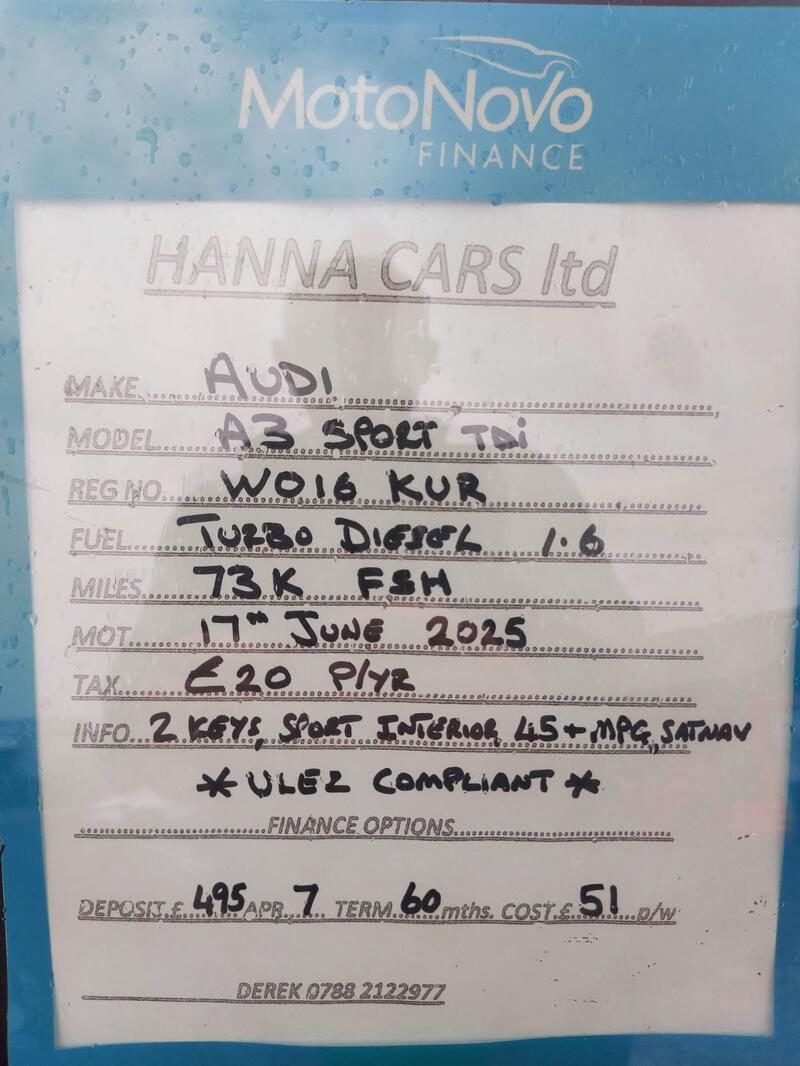 MotoNovo
FINANCE
HANNA CARS ltd
MAKE AUDI
MODEL A3 SPORT TDi
REG NO WO16 KUR
FUEL TURBO DIESEL 1.6
MILES 73K FSH
MOT 17TH JUNE 2025
TAX £20 P/YR
INFO 2 KEYS, SPORT INTERIOR, 45+ MPG, SATNAV
* ULEZ COMPLIANT *
FINANCE OPTIONS
DEPOSIT £ 495 APR 7 TERM 60 mths. COST £ 51 p/w
DEREK 0788 2122977